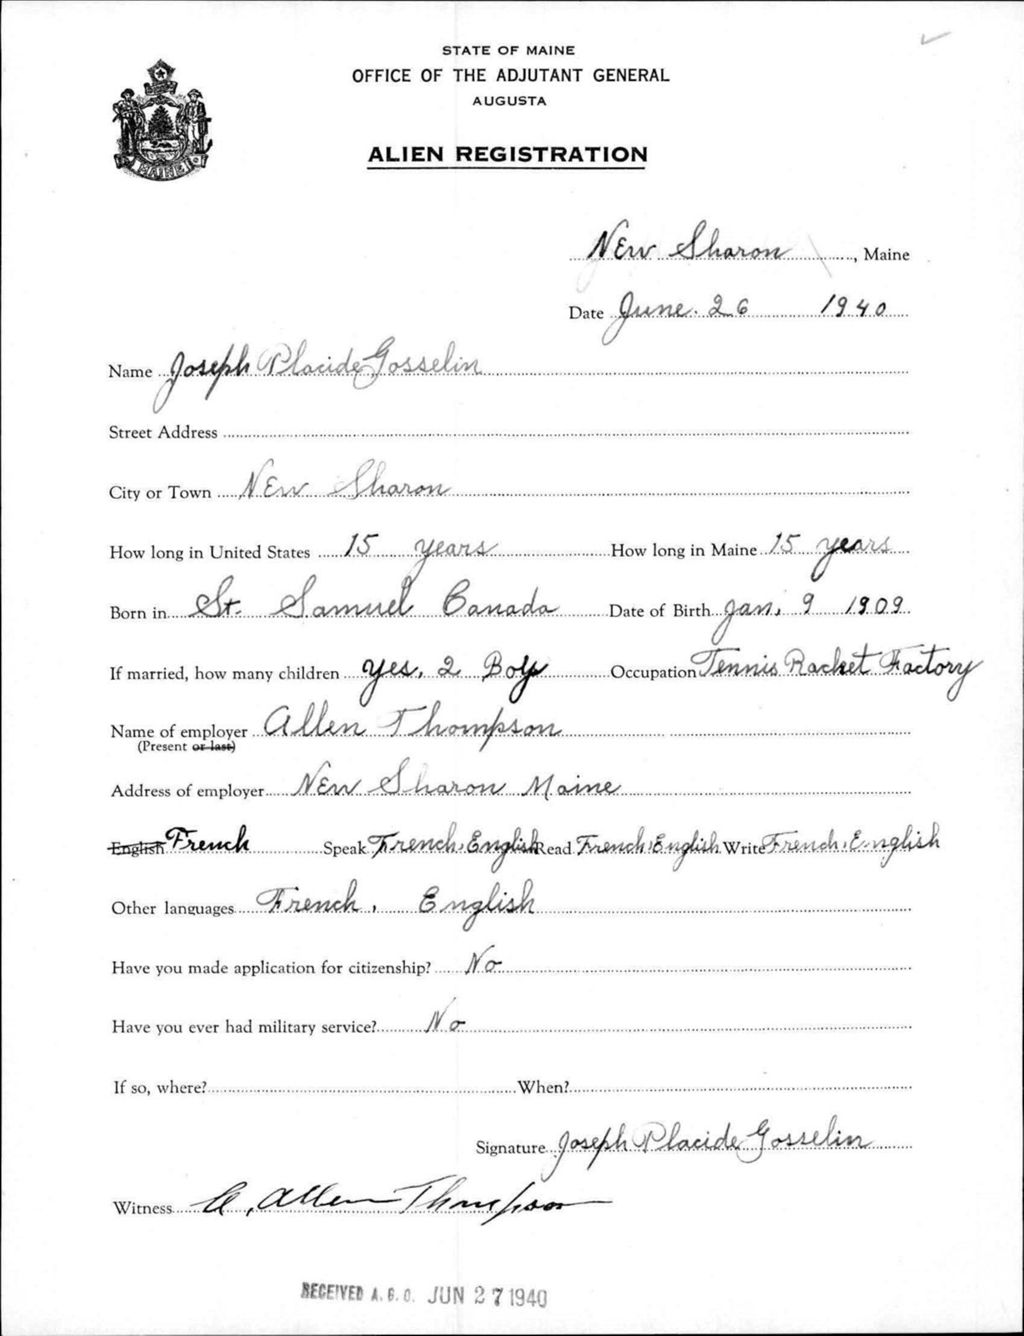 STATE OF MAINE
OFFICE OF THE ADJUTANT GENERAL
AUGUSTA
ALIEN REGISTRATION
MAINE
New Sharon, Maine
Date June. 26 1940
Name Joseph Placide Gosselin
Street Address
City or Town New Sharon
How long in United States 15 years How long in Maine 15 years
Born in St. Samuel Canada Date of Birth Jan. 9 1909
If married, how many children yes, 2 Boys Occupation Tennis Racket Factory
Name of employer Allen Thompson
(Present or last)
Address of employer New Sharon Maine
English French Speak French, English Read French, English Write French, English
Other languages French, English
Have you made application for citizenship? No
Have you ever had military service? No
If so, where? When?
Signature Joseph Placide Gosselin
Witness A. Allen Thompson
RECEIVED A. G. O. JUN 27 1940